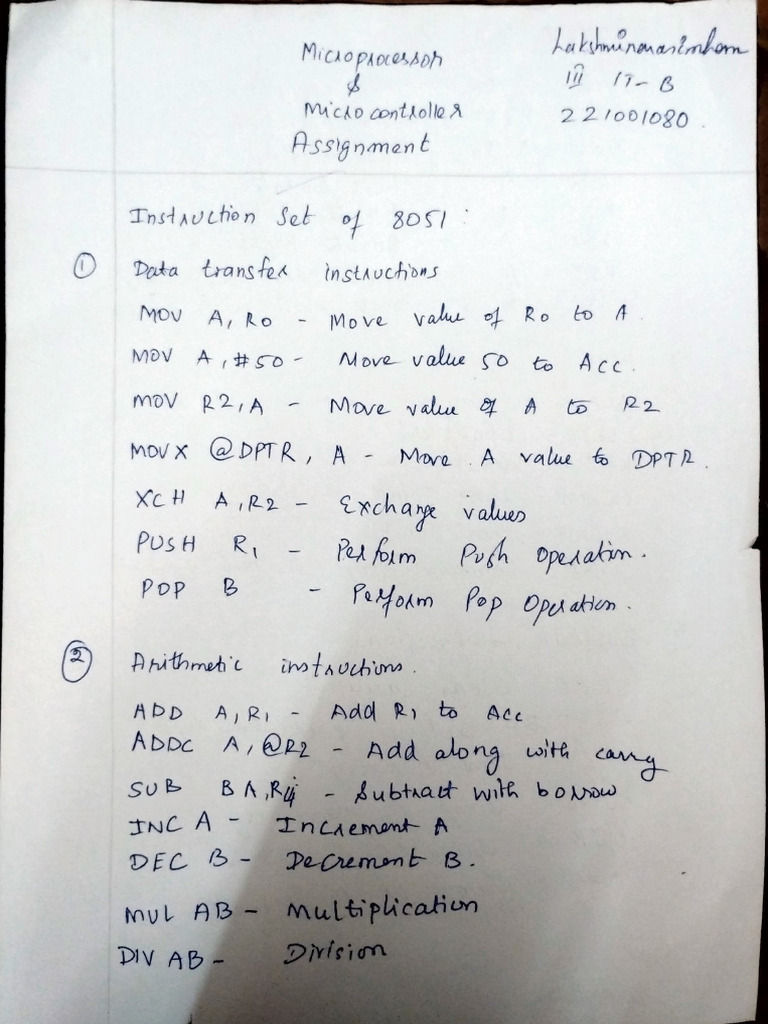 Microprocessor
&
Microcontroller
Assignment
Lakshminarasimhan
III IT-B
221001080.
Instruction Set of 8051:
① Data transfer instructions
MOV A, R0 - Move value of R0 to A.
MOV A, #50 - Move value 50 to Acc.
MOV R2, A - Move value of A to R2
MOVX @DPTR, A - Move A value to DPTR.
XCH A, R2 - Exchange values
PUSH R1 - Perform Push Operation.
POP B - Perform Pop Operation.
② Arithmetic instructions.
ADD A, R1 - Add R1 to Acc
ADDC A, @R2 - Add along with carry
SUB B A, R4 - Subtract with borrow
INC A - Increment A
DEC B - Decrement B.
MUL AB - Multiplication
DIV AB - Division